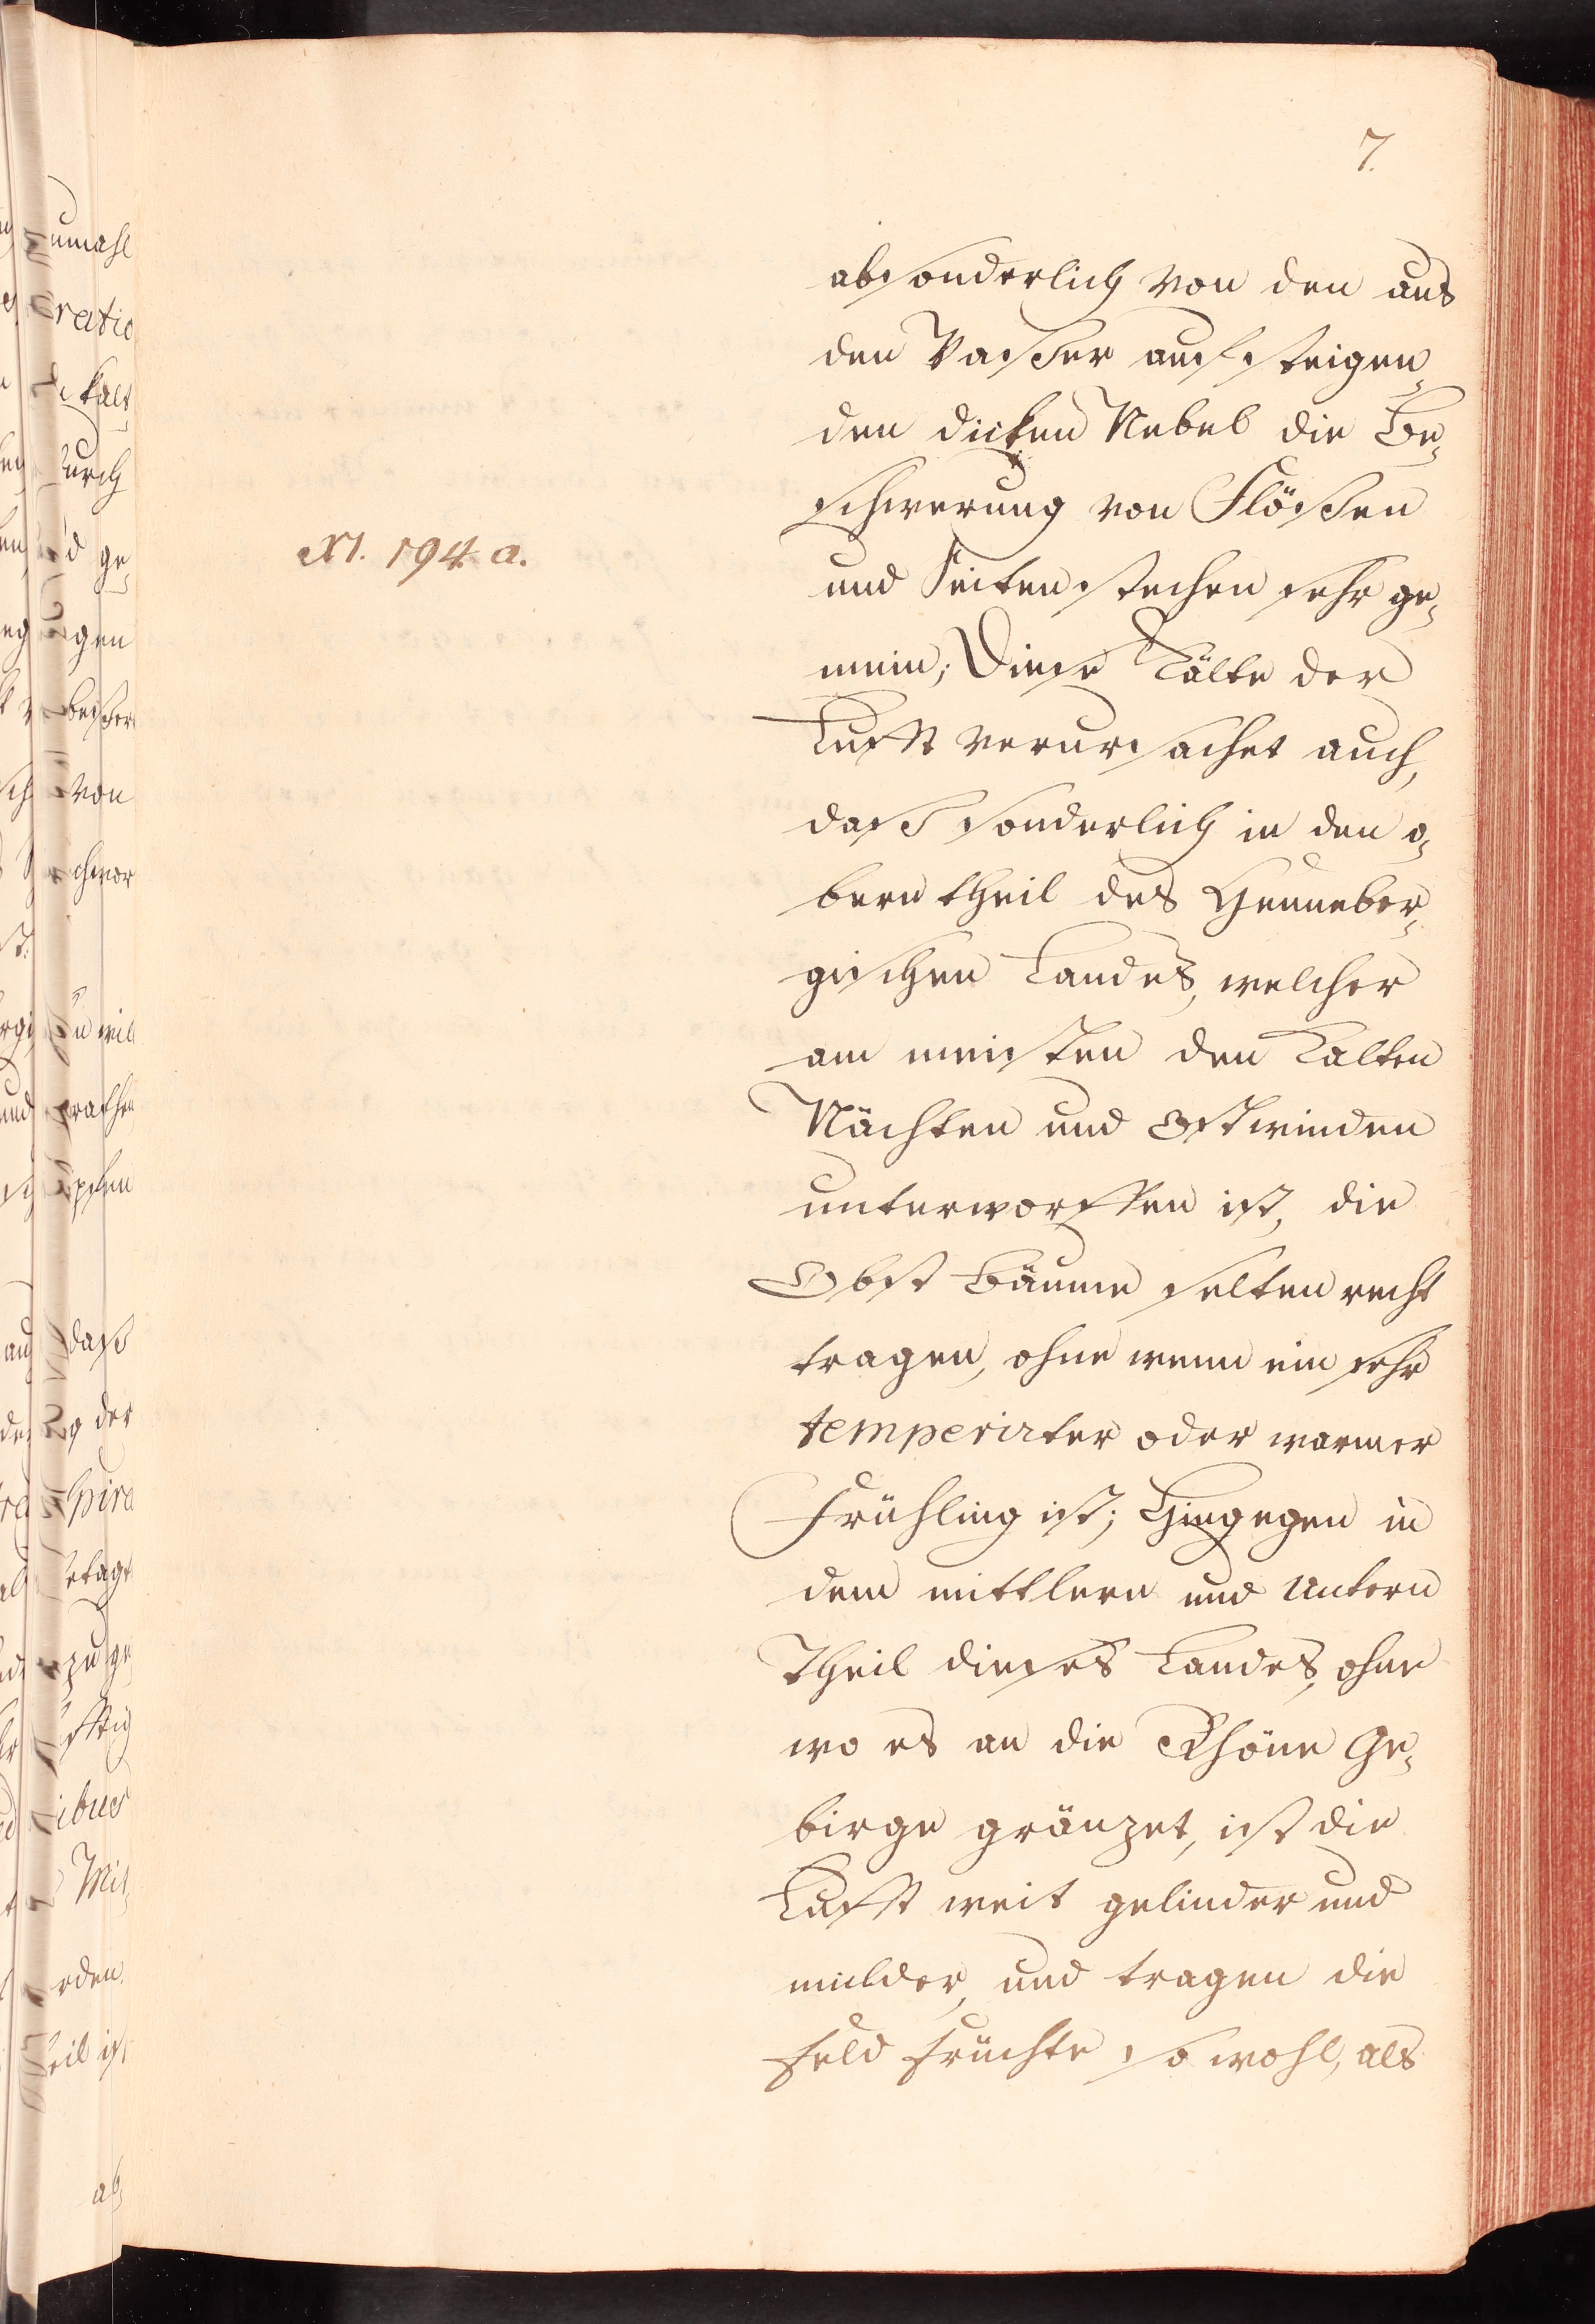 7.
absonderlich von den aus
den Waßer aufsteigen„
den dicken Nebel die Be„
schwerung von Flößen
N. 194. a.
und Seitenstechen sehr ge„
mein; Diese Kälte der
Lufft verursachet auch,
daß sonderlich in den o„
bern theil des Henneber„
gischen Landes, welcher
am meisten den Kalten
Nächten und Ostwinden
unterworffen ist, die
Obst Bäume selten recht
tragen, ohne wenn ein sehr
temperirter oder warmer
Frühling ist; Hingegen in
dem mittlern und Untern
Theil dieses Landes, ohne
wo es an die Rhöne Ge„
birge gränzet, ist die
Lufft weit gelinder und
milder, und tragen die
Feld Früchte so wohl, als